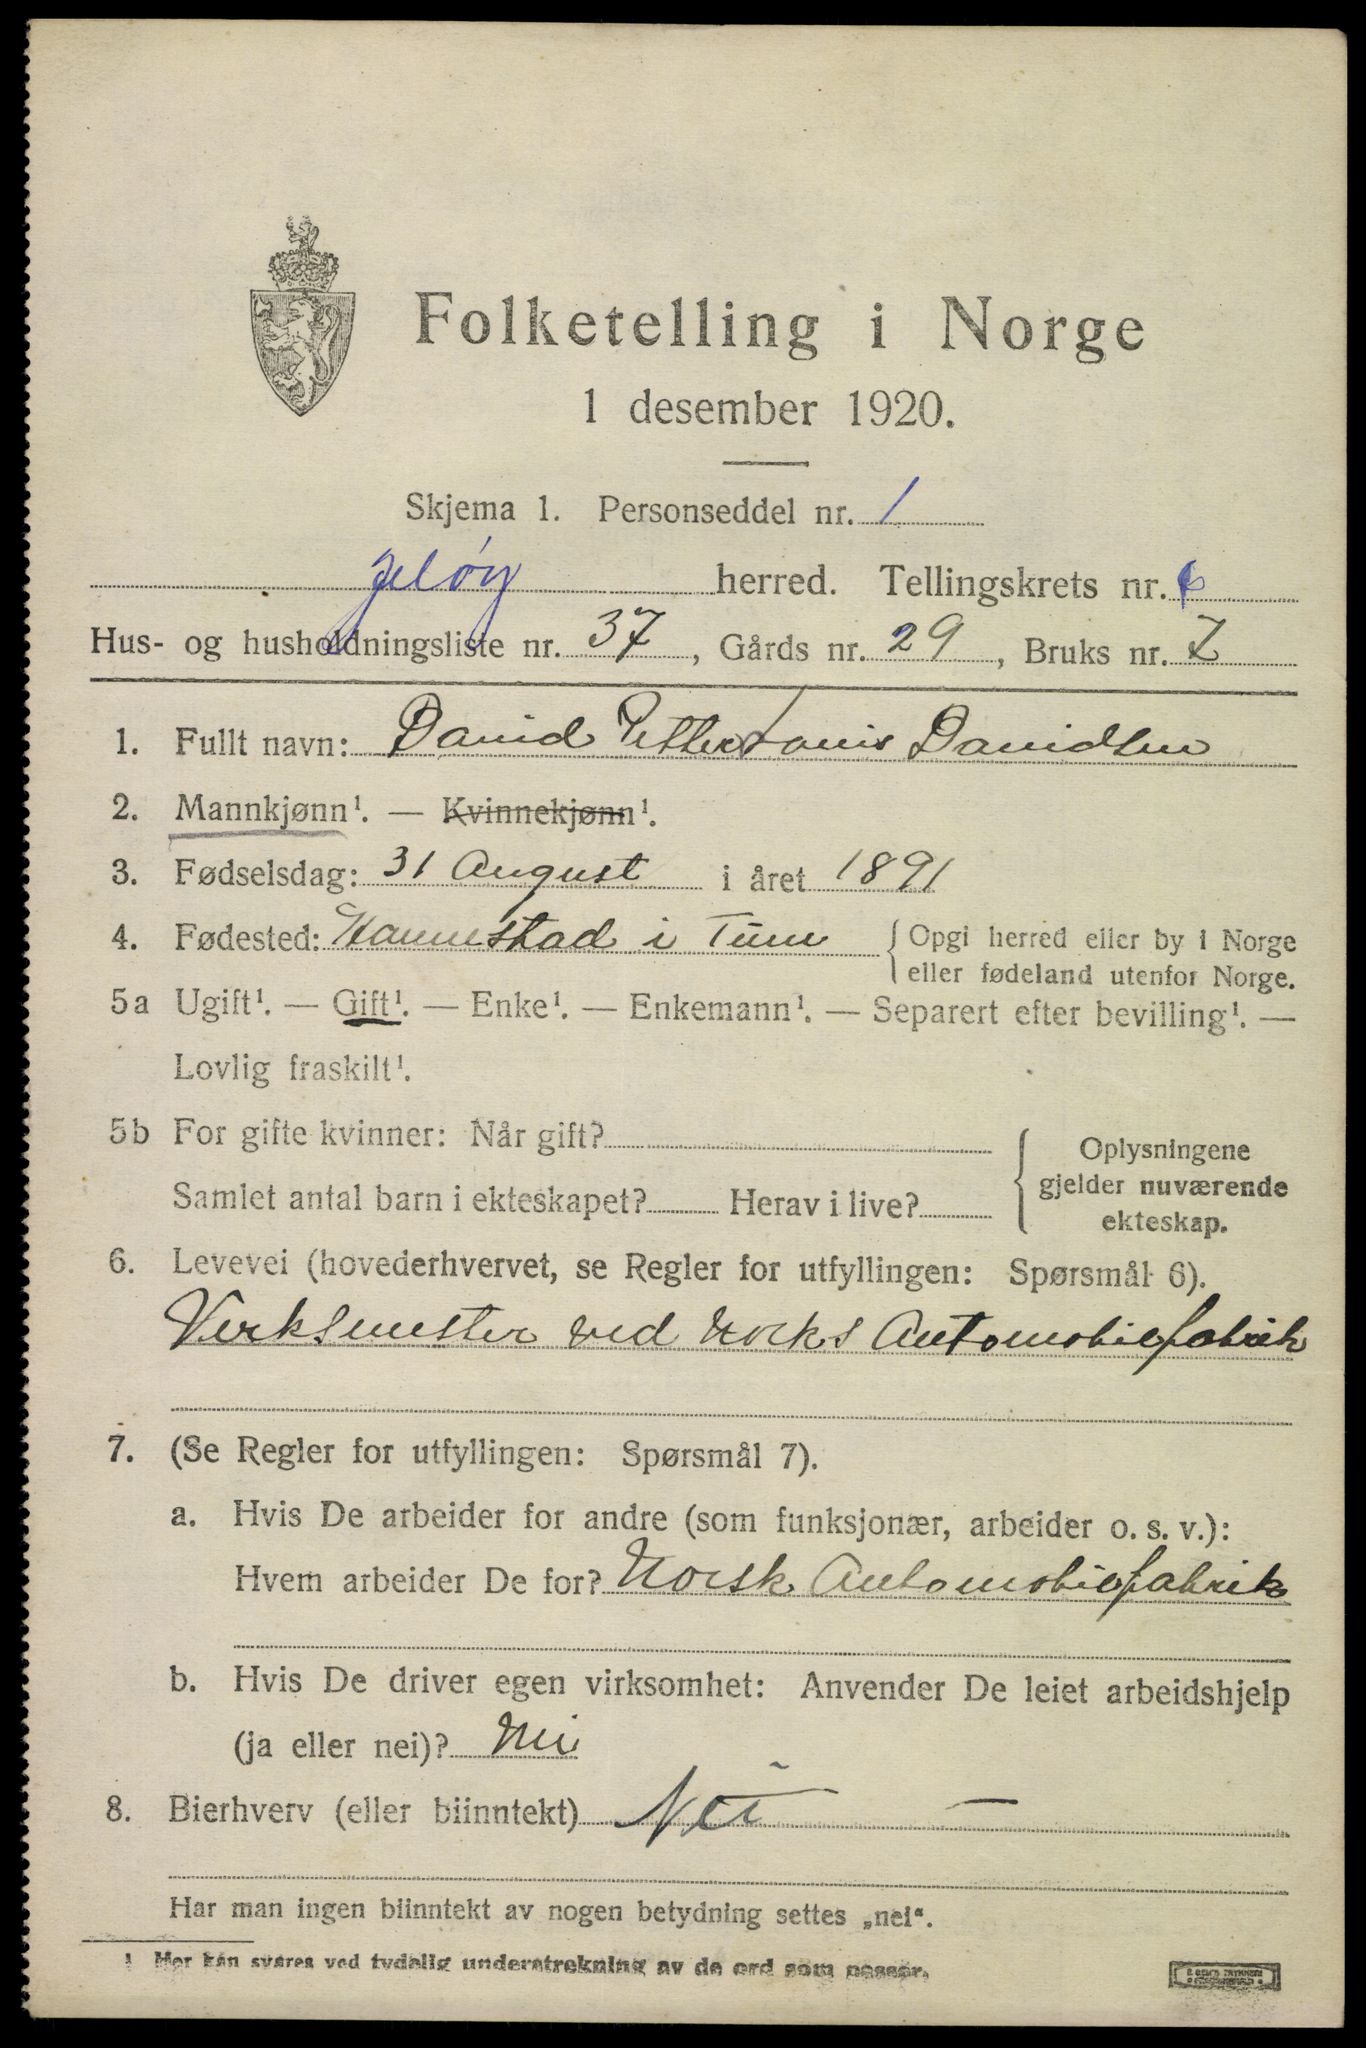 Folketelling i Norge
1 desember 1920.
Skjema 1. Personseddel nr. 1
Jeløy herred. Tellingskrets nr.
Hus- og husholdningsliste nr. 37, Gårds nr. 29, Bruks nr. 7
1. Fullt navn: David Petter Louis Davidsen
2. Mannkjønn¹. — Kvinnekjønn¹.
3. Fødselsdag: 31 August i året 1891
4. Fødested: Haunestad i Tune { Opgi herred eller by i Norge
eller fødeland utenfor Norge.
5a Ugift¹. — Gift¹. — Enke¹. — Enkemann¹. — Separert efter bevilling¹. —
Lovlig fraskilt¹.
5b For gifte kvinner: Når gift?
Samlet antal barn i ekteskapet? Herav i live?
{ Oplysningene
gjelder nuværende
ekteskap.
6. Levevei (hovederhvervet, se Regler for utfyllingen: Spørsmål 6).
Verksmester ved Norks Automobilfabrik
7. (Se Regler for utfyllingen: Spørsmål 7).
a. Hvis De arbeider for andre (som funksjonær, arbeider o. s. v.):
Hvem arbeider De for? Norsk Automobilfabrik
b. Hvis De driver egen virksomhet: Anvender De leiet arbeidshjelp
(ja eller nei)? Nei
8. Bierhverv (eller biinntekt) Nei —
Har man ingen biinntekt av nogen betydning settes „nei“.
1 Her kan svares ved tydelig understrekning av de ord som passer.